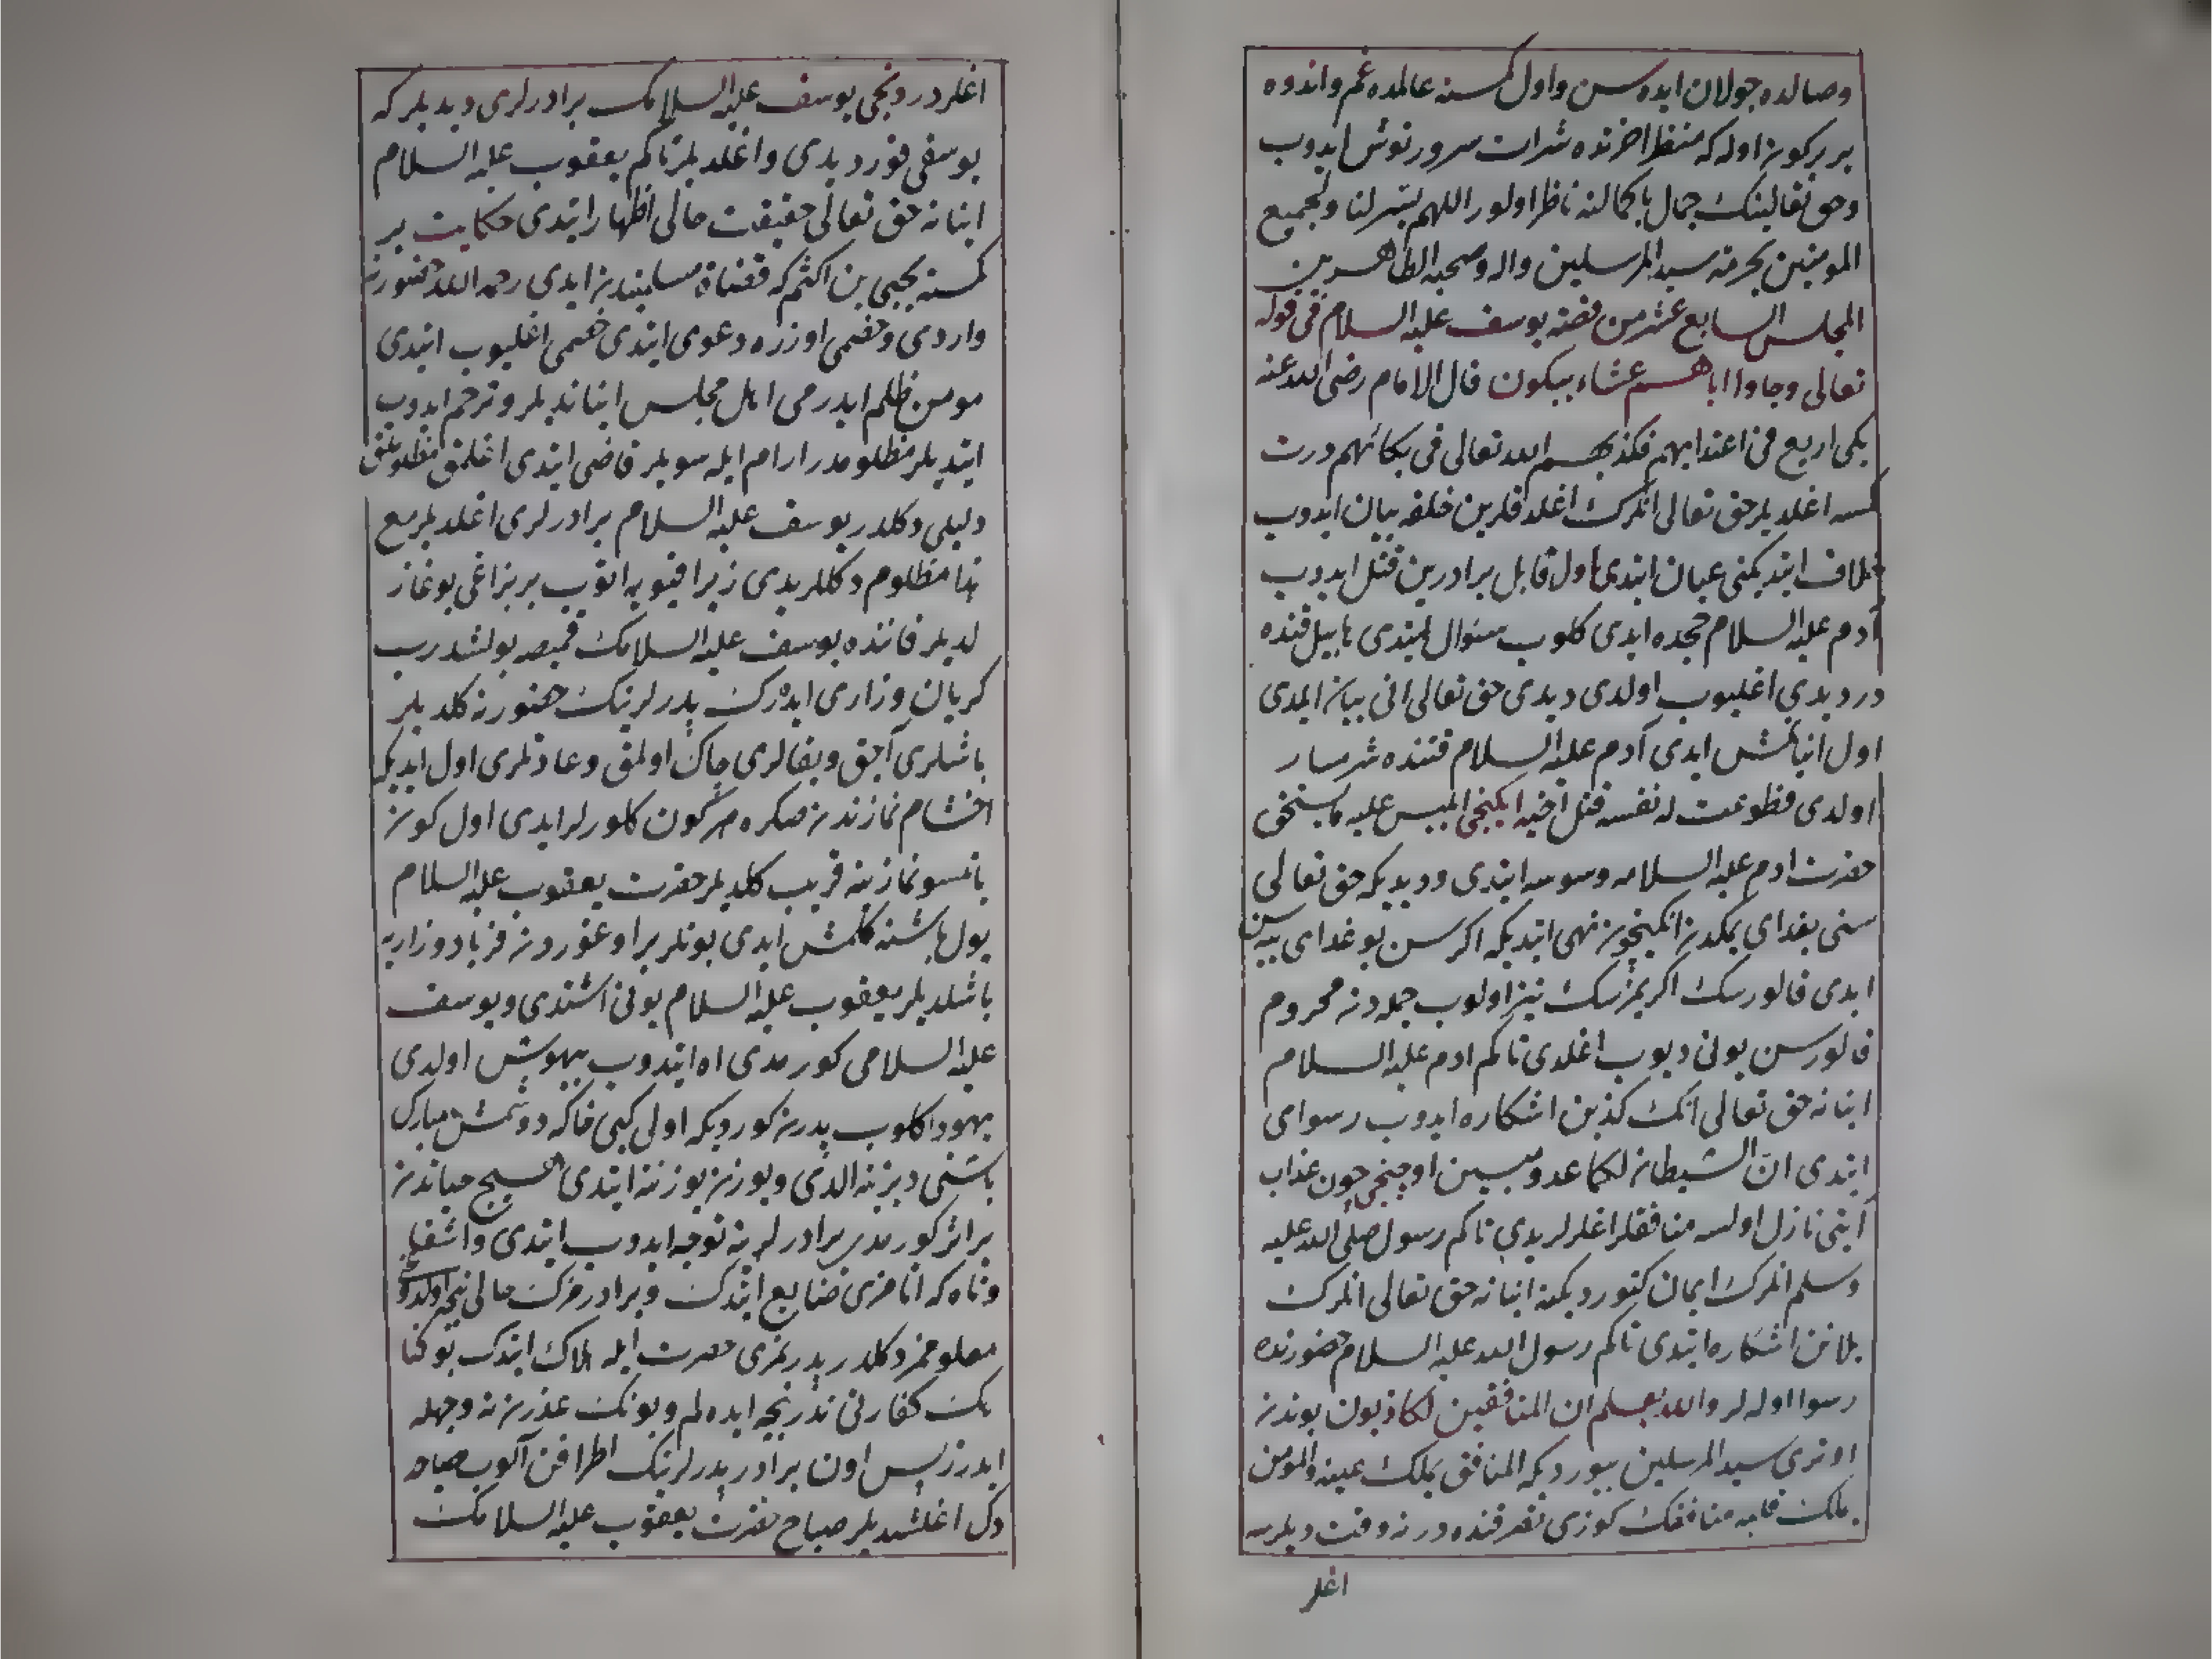 وصالده جولان ایده سن واول کسنه عالمده غم واندوه
بر برکونز اوله که منظر اخرنده شرات سرور نوش ایدوب
وحق تعالینک جمال باکمالنه ناظر اولور اللهم یسر لنا ولجمیع
المومنین بحرمة سید المرسلین واله وصحبه الطاهرین
المجلس السابع عشر من قصة یوسف علیه السلام فی قوله
تعالی وجاوا اباهم عشاء یبکون قال الامام رضی الله عنه
بکی اربع فی اعتدایهم فکذبهم الله تعالی فی بکائهم درت
کسه اغلدیلر حق تعالی انلرک اغلدقلرین خلقه بیان ایدوب
خلاف ایتدیکنی عیان ایتدی اول قابل برادرین قتل ایدوب
آدم علیه السلام حجده ایدی کلوب سئوال ایتدی هابیل قنده
در دیدی اغلیوب اولدی دیدی حق تعالی انی بیان ایلدی
اول انبا ایتمش ایدی آدم علیه السلام قتنده شرمسار
اولدی فطوعت له نفسه قتل اخیه ایکنجی ابلیس علیه ما یستحق
حضرت ادم علیه السلامه وسوسه ایتدی ودیدیکه حق تعالی
سنی بغدای یمکدن انکیچون نهی ایتدیکه اکر سن بوغدای ییه سن
ابدی قالورسک اکر یمزسک تیز اولوب جمله دنه محروم
قالورسن بونی دیوب اغلدی تاکم ادم علیه السلام
اینانه حق تعالی انک کذبن اشکاره ایدوب رسوای
ایتدی ان الشیطان لکما عدو مبین اوچنجی چون عذاب
آیتی نازل اولسه منافقلر اغلرلریدی تاکم رسول صلی الله علیه
وسلم انلرک ایمان کتوردیکنه اینانه حق تعالی انلرک
یلانن اشکاره ایتدی تاکم رسول الله علیه السلام حضورنده
رسوا اوله لر والله یعلم ان المنافقین لکاذبون بوندن
اوتری سید المرسلین بیوردیکه المنافق یملک عینه والمومن
یملک قلبه منافقک کوزی تقرفنده در نه وقت دیلرسه
اغلر
اغلر دردنجی یوسف علیه السلامک برادرلری دیدیلر که
یوسفی قورد یدی واغلدیلر تاکم یعقوب علیه السلام
اینانه حق تعالی حقیقت حالی اظهار ایتدی حکایت بر
کمسنه یحیی بن اکثم که قضاة مسلمیندن ایدی رحمه الله حضورنه
واردی وخصمی اوزره دعوی ایتدی خصمی اغلیوب ایتدی
مومن ظلم ایدرمی اهل مجلس ایناندیلر وترحم ایدوب
ایتدیلر مظلومدر ارام ایله سویلر قاضی ایتدی اغلمق مظلوملق
دلیلی دکلدر یوسف علیه السلام برادرلری اغلدیلر مع
هذا مظلوم دکللریدی زیرا قیویه اتوب بر بزاغی بوغاز
لدیلر قاننده یوسف علیه السلامک قمیصه بولشدرب
کریان وزاری ایدرک پدرلرینک حضورنه کلدیلر
باشلری آچق ویقالری چاک اولمق وعادتلری اول ایدیکه
اخشام نمازندن صکره هر کون کلورلر ایدی اول کونز
یاتسو نمازینه قریب کلدیلر حضرت یعقوب علیه السلام
یول باشنه کلمش ایدی بونلر براوغوردنه فریاد وزاریه
باشلدیلر یعقوب علیه السلام بونی اشتدی ویوسف
علیه السلامی کورمدی اه ایتدوب بیهوش اولدی
یهودا کلوب پدرن کوردیکه اولی کبی خاکه دوشمش مبارک
باشنی دیزنه الدی ویوزنز یوزنه ایتدی هیچ حیاتدنز
بر اثر کورمدی برادرلرینه توجه ایدوب ایتدی وا اشفا
وناه که انامزی ضایع ایتدک وبرادرمزک حالی نیجه اولدوغی
معلومز دکلدر پدریمزی حسرت ایله هلاک ایتدک بو کنا
هک کفارتی ندر نیجه ایده لم وبونک عذرین نه وجهله
ایدرز پس اون برادر پدرلرینک اطرافن آلوب صباحه
دک اغلشدیلر صباح حضرت یعقوب علیه السلامک